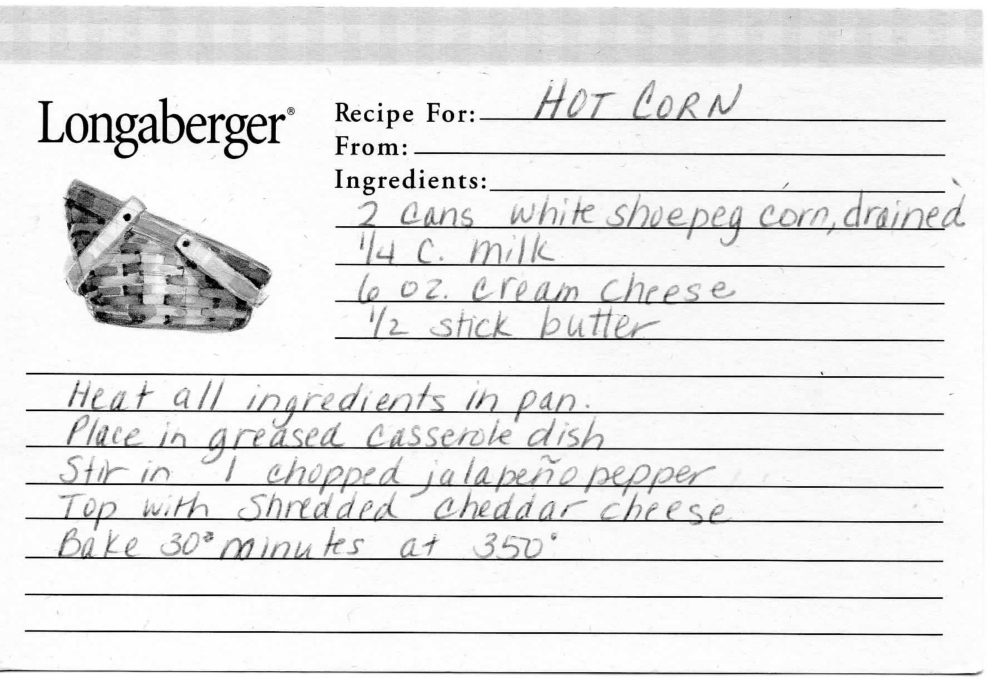 Longaberger®
Recipe For: HOT CORN
From:
Ingredients:
2 cans white shoepeg corn, drained
1/4 C. milk
6 oz. cream cheese
1/2 stick butter
Heat all ingredients in pan.
Place in greased casserole dish
Stir in 1 chopped jalapeño pepper
Top with Shredded cheddar cheese
Bake 30° minutes at 350°